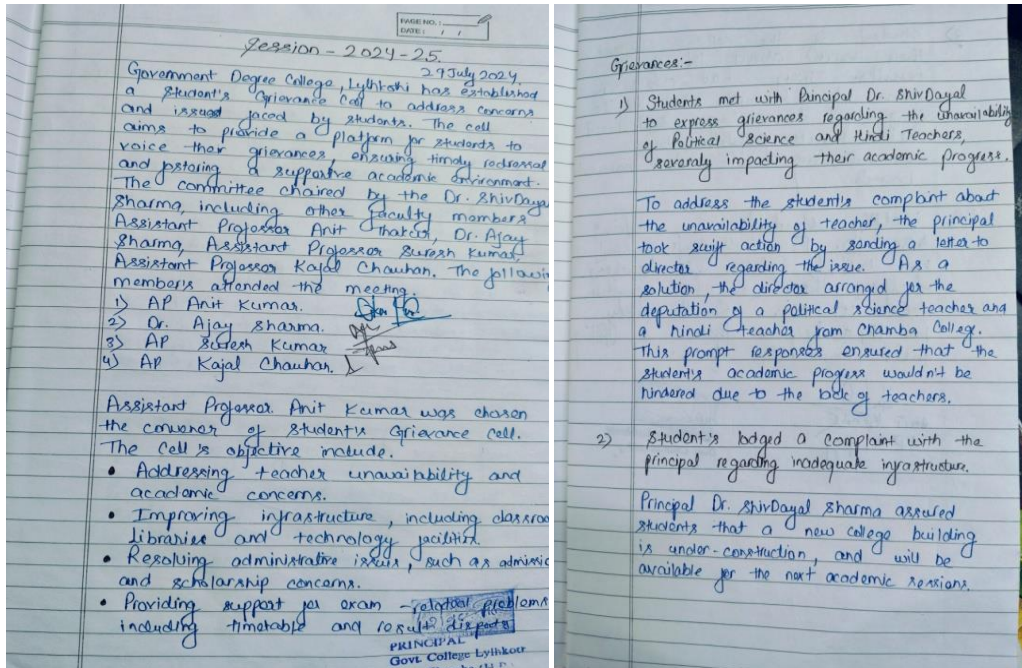 PAGE NO.:
DATE: / /
Session - 2024-25.
29 July 2024.
Government Degree College, Lylhkothi has established
a student's Grievance Cell to address concerns
and issues faced by students. The cell
aims to provide a platform for students to
voice their grievances, ensuring timely redressal
and fostering a supportive academic environment.
The committee chaired by the Dr. ShivDayal
Sharma, including other faculty members
Assistant Professor Anit Thakur, Dr. Ajay
Sharma, Assistant Professor Suresh Kumar,
Assistant Professor Kajal Chauhan. The followin
member's attended the meeting.
1) AP Anit Kumar.
2) Dr. Ajay Sharma.
3) AP Suresh Kumar
4) AP Kajal Chauhan.
Assistant Professor. Anit Kumar was chosen
the convener of student's Grievance Cell.
The Cell's objective include.
• Addressing teacher unavailability and
academic concerns.
• Improving infrastructure, including classroo
libraries and technology facilities.
• Resolving administrative issues, such as admissio
and scholarship concerns.
• Providing support for exam-related problems
including timetable and result dispute
PRINCIPAL
Govt. College Lylhkoti
Grievances:-
1) Students met with Principal Dr. ShivDayal
to express grievances regarding the unavailability
of Political Science and Hindi Teachers,
severaly impacting their academic progress.
To address the student's complaint about
the unavailability of teacher, the principal
took swift action by sending a letter to
director regarding the issue. As a
solution, the director arranged for the
deputation of a political science teacher and
a hindi teacher from Chamba College.
This prompt responses ensured that the
student's academic progress wouldn't be
hindered due to the lack of teachers.
2) Student's lodged a complaint with the
principal regarding inadequate infrastructure.
Principal Dr. ShivDayal Sharma assured
students that a new college building
is under-construction, and will be
available for the next academic sessions.